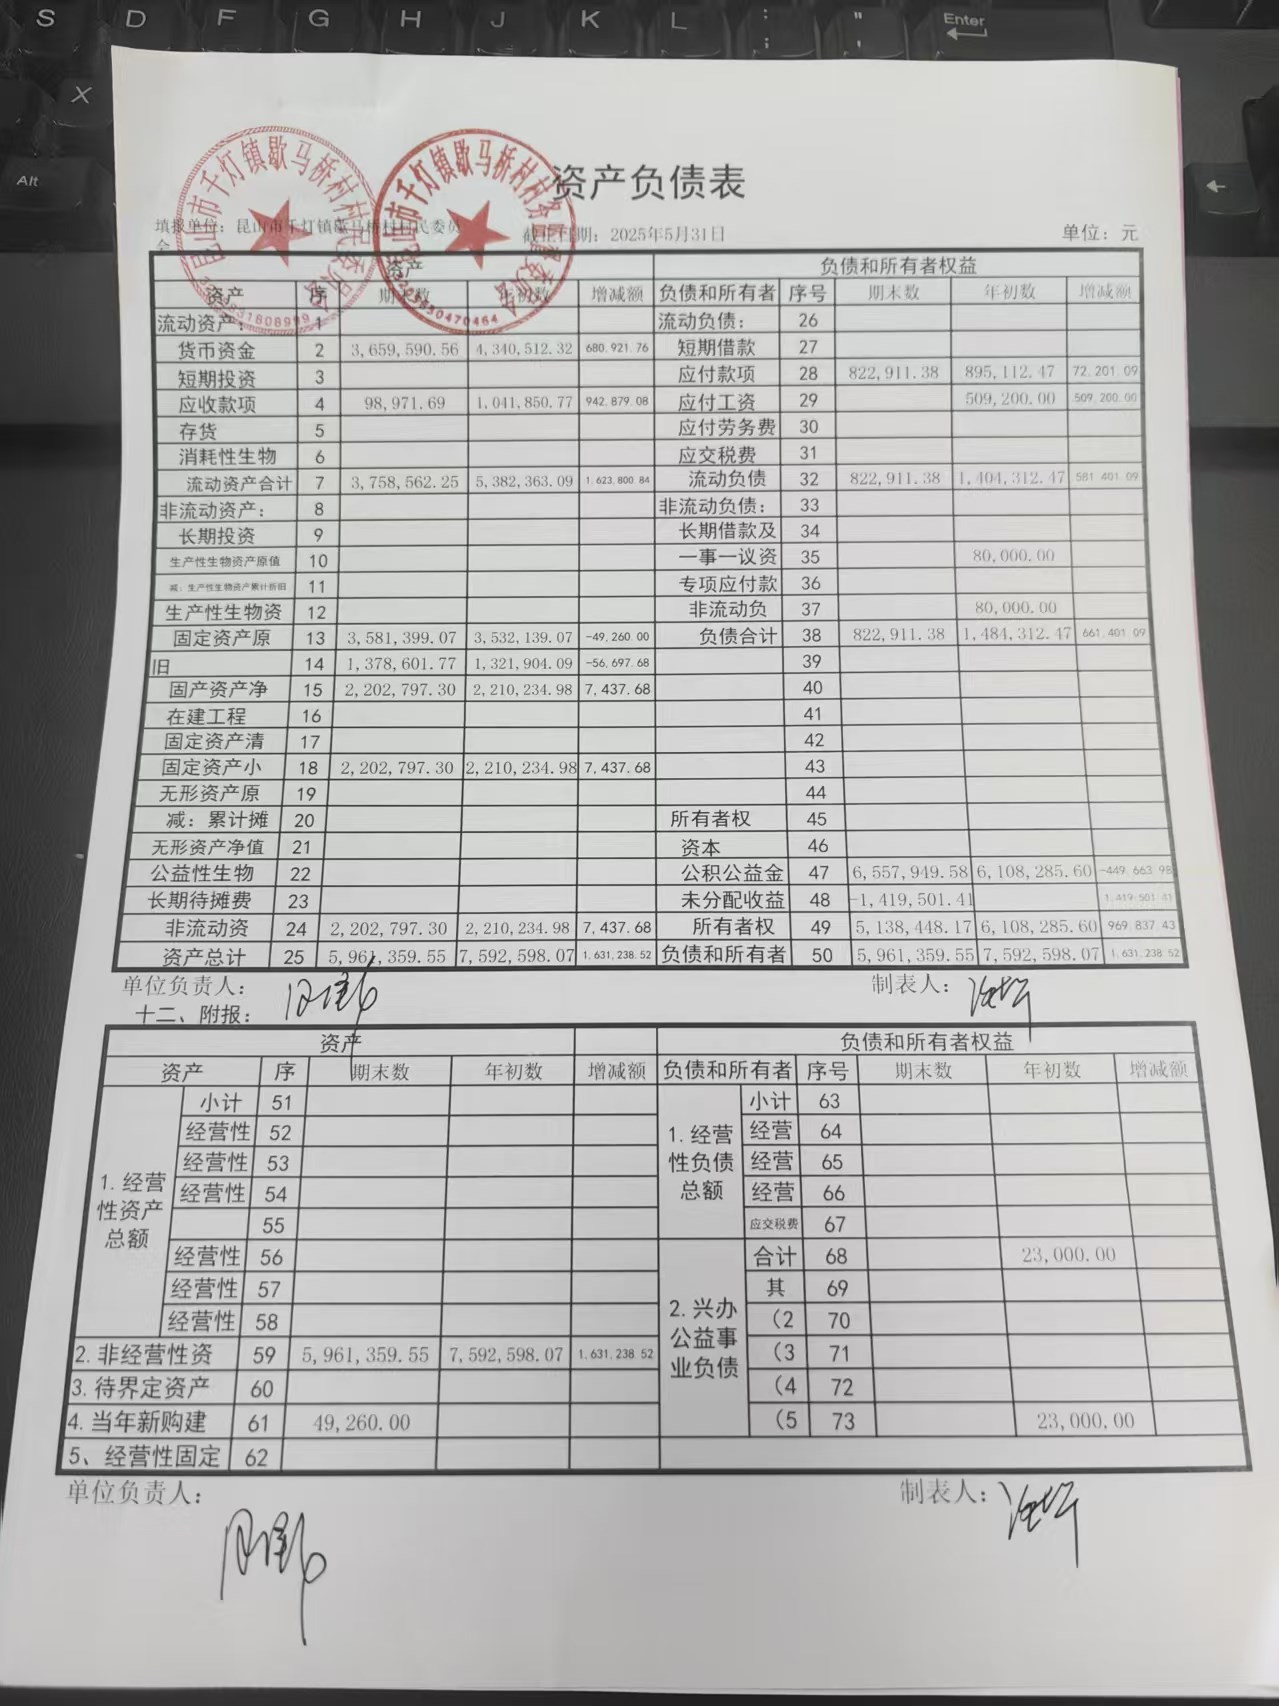 S D F G H J K L : ; " ' Enter
X
Alt
昆山市千灯镇歇马桥村村民委员会
资产负债表
填报单位：昆山市千灯镇歇马桥村村民委员会 截止日期：2025年5月31日 单位：元
资产 负债和所有者权益
资产 序 期末数 年初数 增减额 负债和所有者 序号 期末数 年初数 增减额
流动资产： 1 流动负债： 26
货币资金 2 3,659,590.56 4,340,512.32 680,921.76 短期借款 27
短期投资 3 应付款项 28 822,911.38 895,112.47 72,201.09
应收款项 4 98,971.69 1,041,850.77 942,879.08 应付工资 29 509,200.00 509,200.00
存货 5 应付劳务费 30
消耗性生物 6 应交税费 31
流动资产合计 7 3,758,562.25 5,382,363.09 1,623,800.84 流动负债 32 822,911.38 1,404,312.47 581,401.09
非流动资产： 8 非流动负债： 33
长期投资 9 长期借款及 34
生产性生物资产原值 10 一事一议资 35 80,000.00
减：生产性生物资产累计折旧 11 专项应付款 36
生产性生物资 12 非流动负 37 80,000.00
固定资产原 13 3,581,399.07 3,532,139.07 -49,260.00 负债合计 38 822,911.38 1,484,312.47 661,401.09
旧 14 1,378,601.77 1,321,904.09 -56,697.68 39
固产资产净 15 2,202,797.30 2,210,234.98 7,437.68 40
在建工程 16 41
固定资产清 17 42
固定资产小 18 2,202,797.30 2,210,234.98 7,437.68 43
无形资产原 19 44
减：累计摊 20 所有者权 45
无形资产净值 21 资本 46
公益性生物 22 公积公益金 47 6,557,949.58 6,108,285.60 -449,663.98
长期待摊费 23 未分配收益 48 -1,419,501.41 1,419,501.41
非流动资 24 2,202,797.30 2,210,234.98 7,437.68 所有者权 49 5,138,448.17 6,108,285.60 969,837.43
资产总计 25 5,961,359.55 7,592,598.07 1,631,238.52 负债和所有者 50 5,961,359.55 7,592,598.07 1,631,238.52
单位负责人： 制表人：
十二、附报：
资产 负债和所有者权益
资产 序 期末数 年初数 增减额 负债和所有者 序号 期末数 年初数 增减额
1.经营性资产总额 小计 51 1.经营性负债总额 小计 63
经营性 52 经营 64
经营性 53 经营 65
经营性 54 经营 66
55 应交税费 67
经营性 56 2.兴办公益事业负债 合计 68 23,000.00
经营性 57 其 69
经营性 58 （2 70
2.非经营性资 59 5,961,359.55 7,592,598.07 1,631,238.52 （3 71
3.待界定资产 60 （4 72
4.当年新购建 61 49,260.00 （5 73 23,000.00
5、经营性固定 62
单位负责人： 制表人：